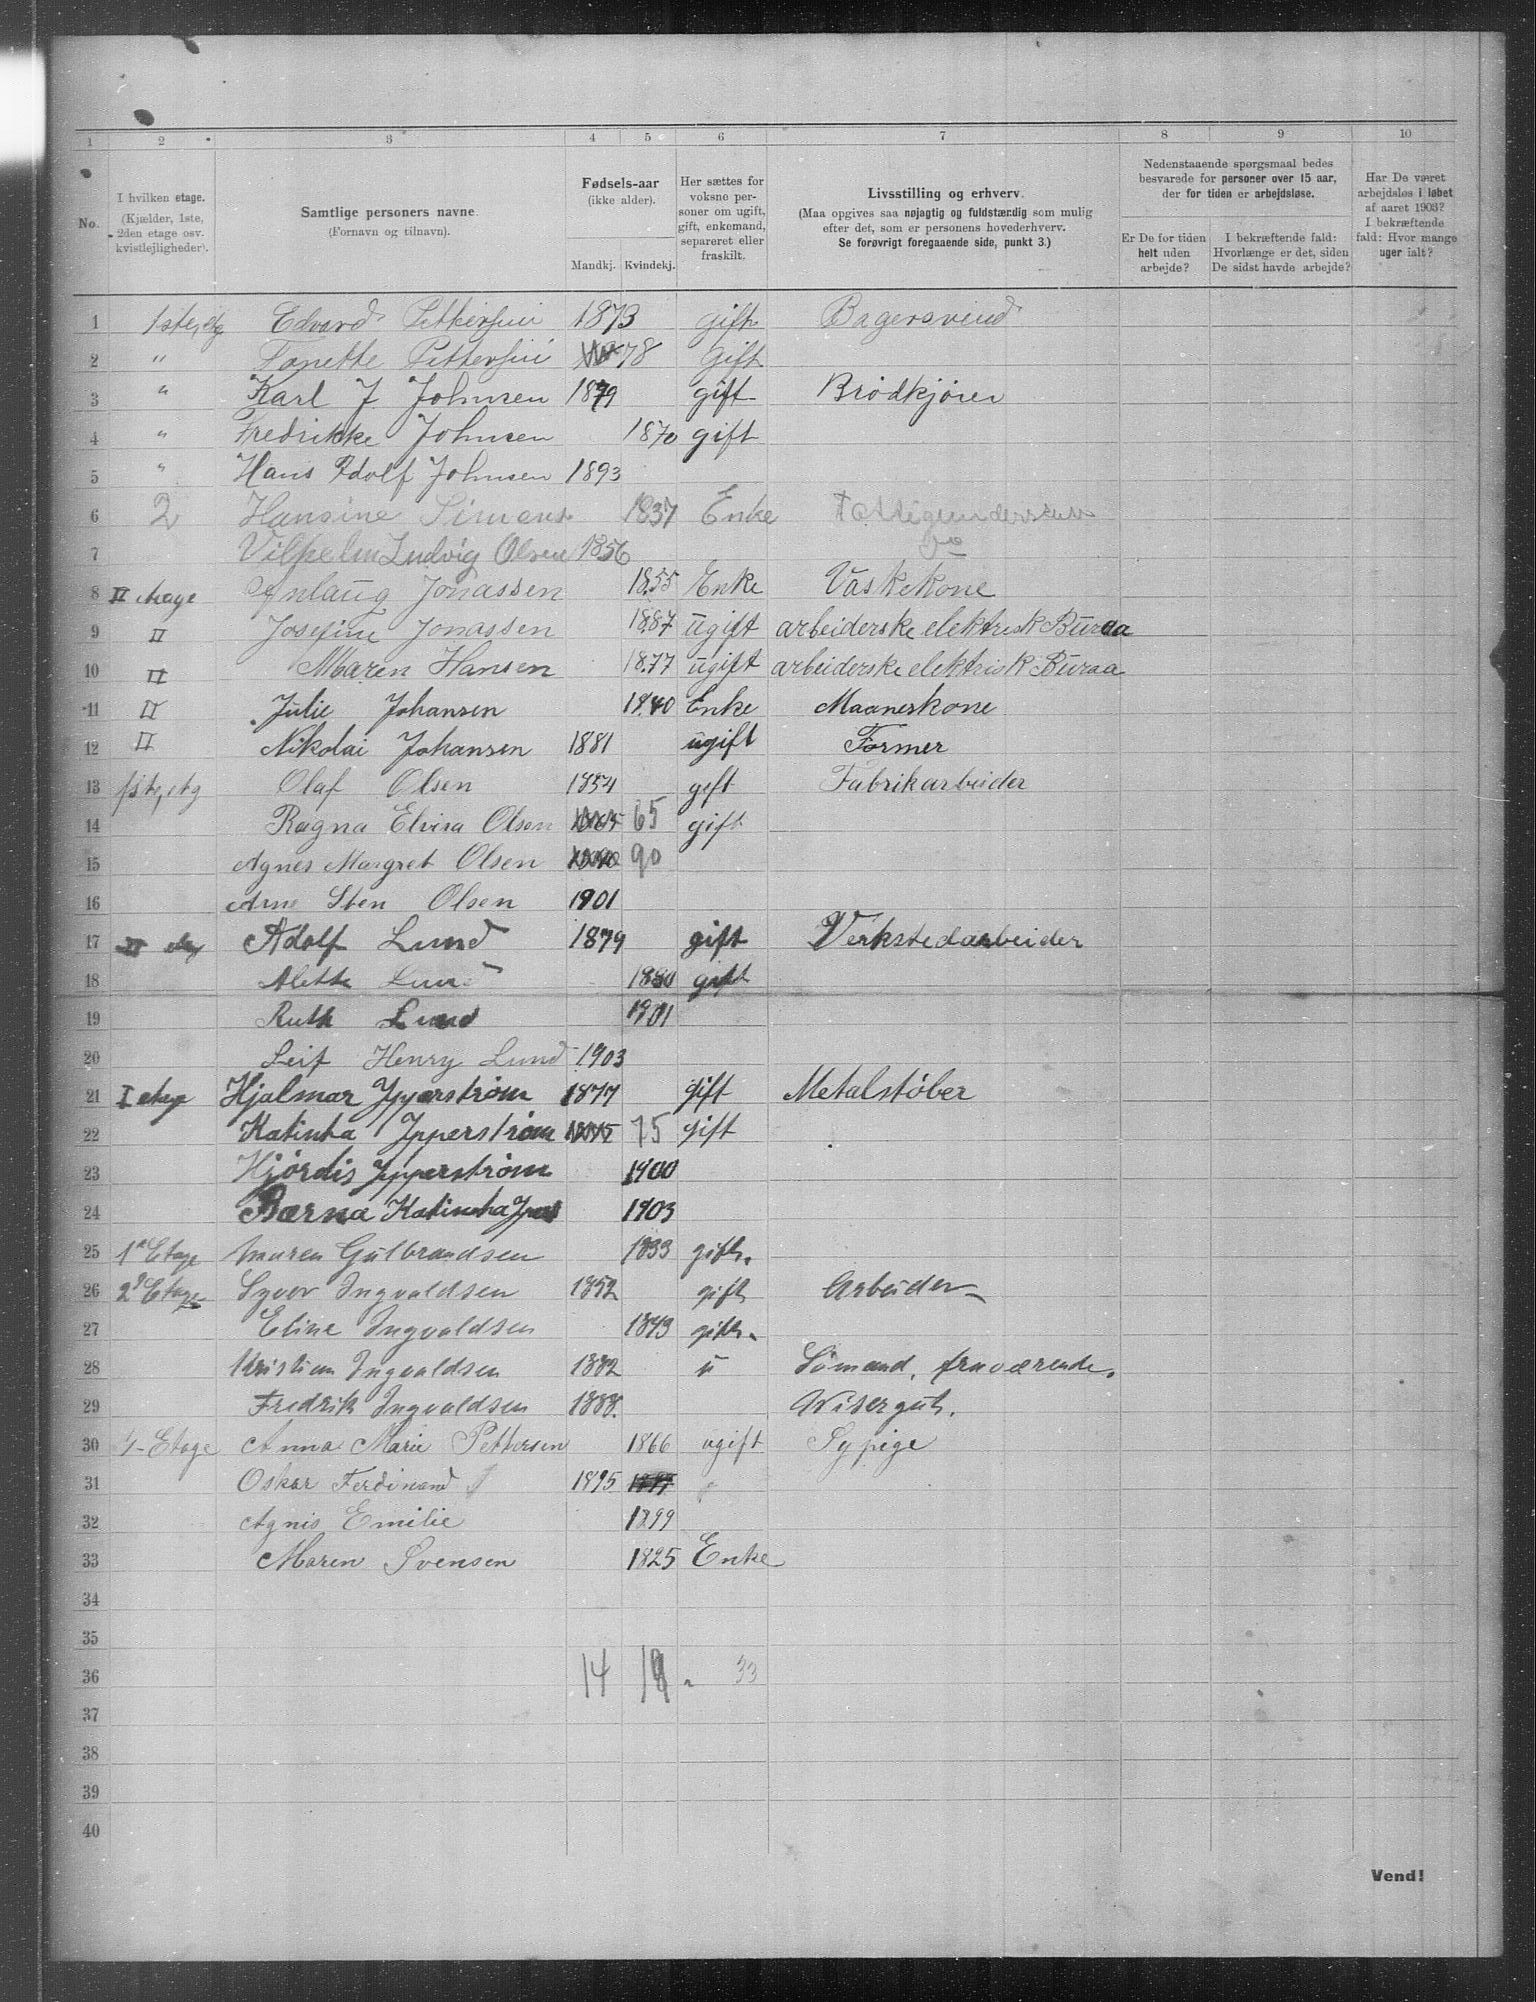 1 2 3 4 5 6 7 8 9 10
No.
I hvilken etage.
(Kjælder, 1ste,
2den etage osv.
kvistlejligheder).
Samtlige personers navne.
(Fornavn og tilnavn).
Fødsels-aar
(ikke alder).
Mandkj. Kvindekj.
Her sættes for
voksne per-
soner om ugift,
gift, enkemand,
separeret eller
fraskilt.
Livsstilling og erhverv.
(Maa opgives saa nøjagtig og fuldstændig som mulig
efter det, som er personens hovederhverv.
Se forøvrigt foregaaende side, punkt 3.)
Nedenstaaende spørgsmaal bedes
besvarede for personer over 15 aar,
der for tiden er arbejdsløse.
Er De for tiden
helt uden
arbejde?
I bekræftende fald:
Hvorlænge er det, siden
De sidst havde arbejde?
Har De været
arbejdsløs i løbet
af aaret 1903?
I bekræftende
fald: Hvor mange
uger ialt?
1 1ste etg Edvard Pettersen 1873 gift Bagersvend
2 " Fanette Pettersen 78 Gift
3 " Karl J. Johnsen 1879 gift Brødkjører
4 " Fredrikke Johnsen 1870 gift
5 " Hans Adolf Johnsen 1893
6 2 Hansine Simens 1837 Enke
7 Vilhelm Ludvig Olsen 1856
8 II etage Anlaug Jonassen 1855 Enke Vaskekone
9 II Josefine Jonassen 1887 ugift arbeiderske elektrisk Buraa
10 II Maren Hansen 1877 ugift arbeiderske elektrisk Buraa
11 II Julie Johansen 1840 Enke Maaneskone
12 II Nikolai Johansen 1881 ugift Former
13 1ste, etg Olaf Olsen 1854 gift Fabrikarbeider
14 Ragna Elvira Olsen 1865 65 gift
15 Agnes Margret Olsen 1890 90
16 Arne Sten Olsen 1901
17 II etg Adolf Lund 1879 gift Verkstedarbeider
18 Alette Lund 1880 gift
19 Ruth Lund 1901
20 Leif Henry Lund 1903
21 I etage Hjalmar Ypperstrøm 1877 gift Metalstøber
22 Katinka Ypperstrøm 1875 75 gift
23 Hjørdis Ypperstrøm 1900
24 Katinka 1903
25 1ste Etage Maren Gulbrandsen 1833 gift.
26 2d Etage Syver Ingvaldsen 1852 gift Arbeider
27 Eline Ingvaldsen 1843 gift.
28 Kristian Ingvaldsen 1882 u Sömand, fraværende.
29 Fredrik Ingvaldsen 1888. Visergut.
30 1- Etage Anna Marie Pettersen 1866 ugift Sypige
31 Oskar Ferdinand 1895
32 Agnis Emilie 1899
33 Maren Svensen 1825 Enke
34
35
36 14 18 33
37
38
39
40
Vend!